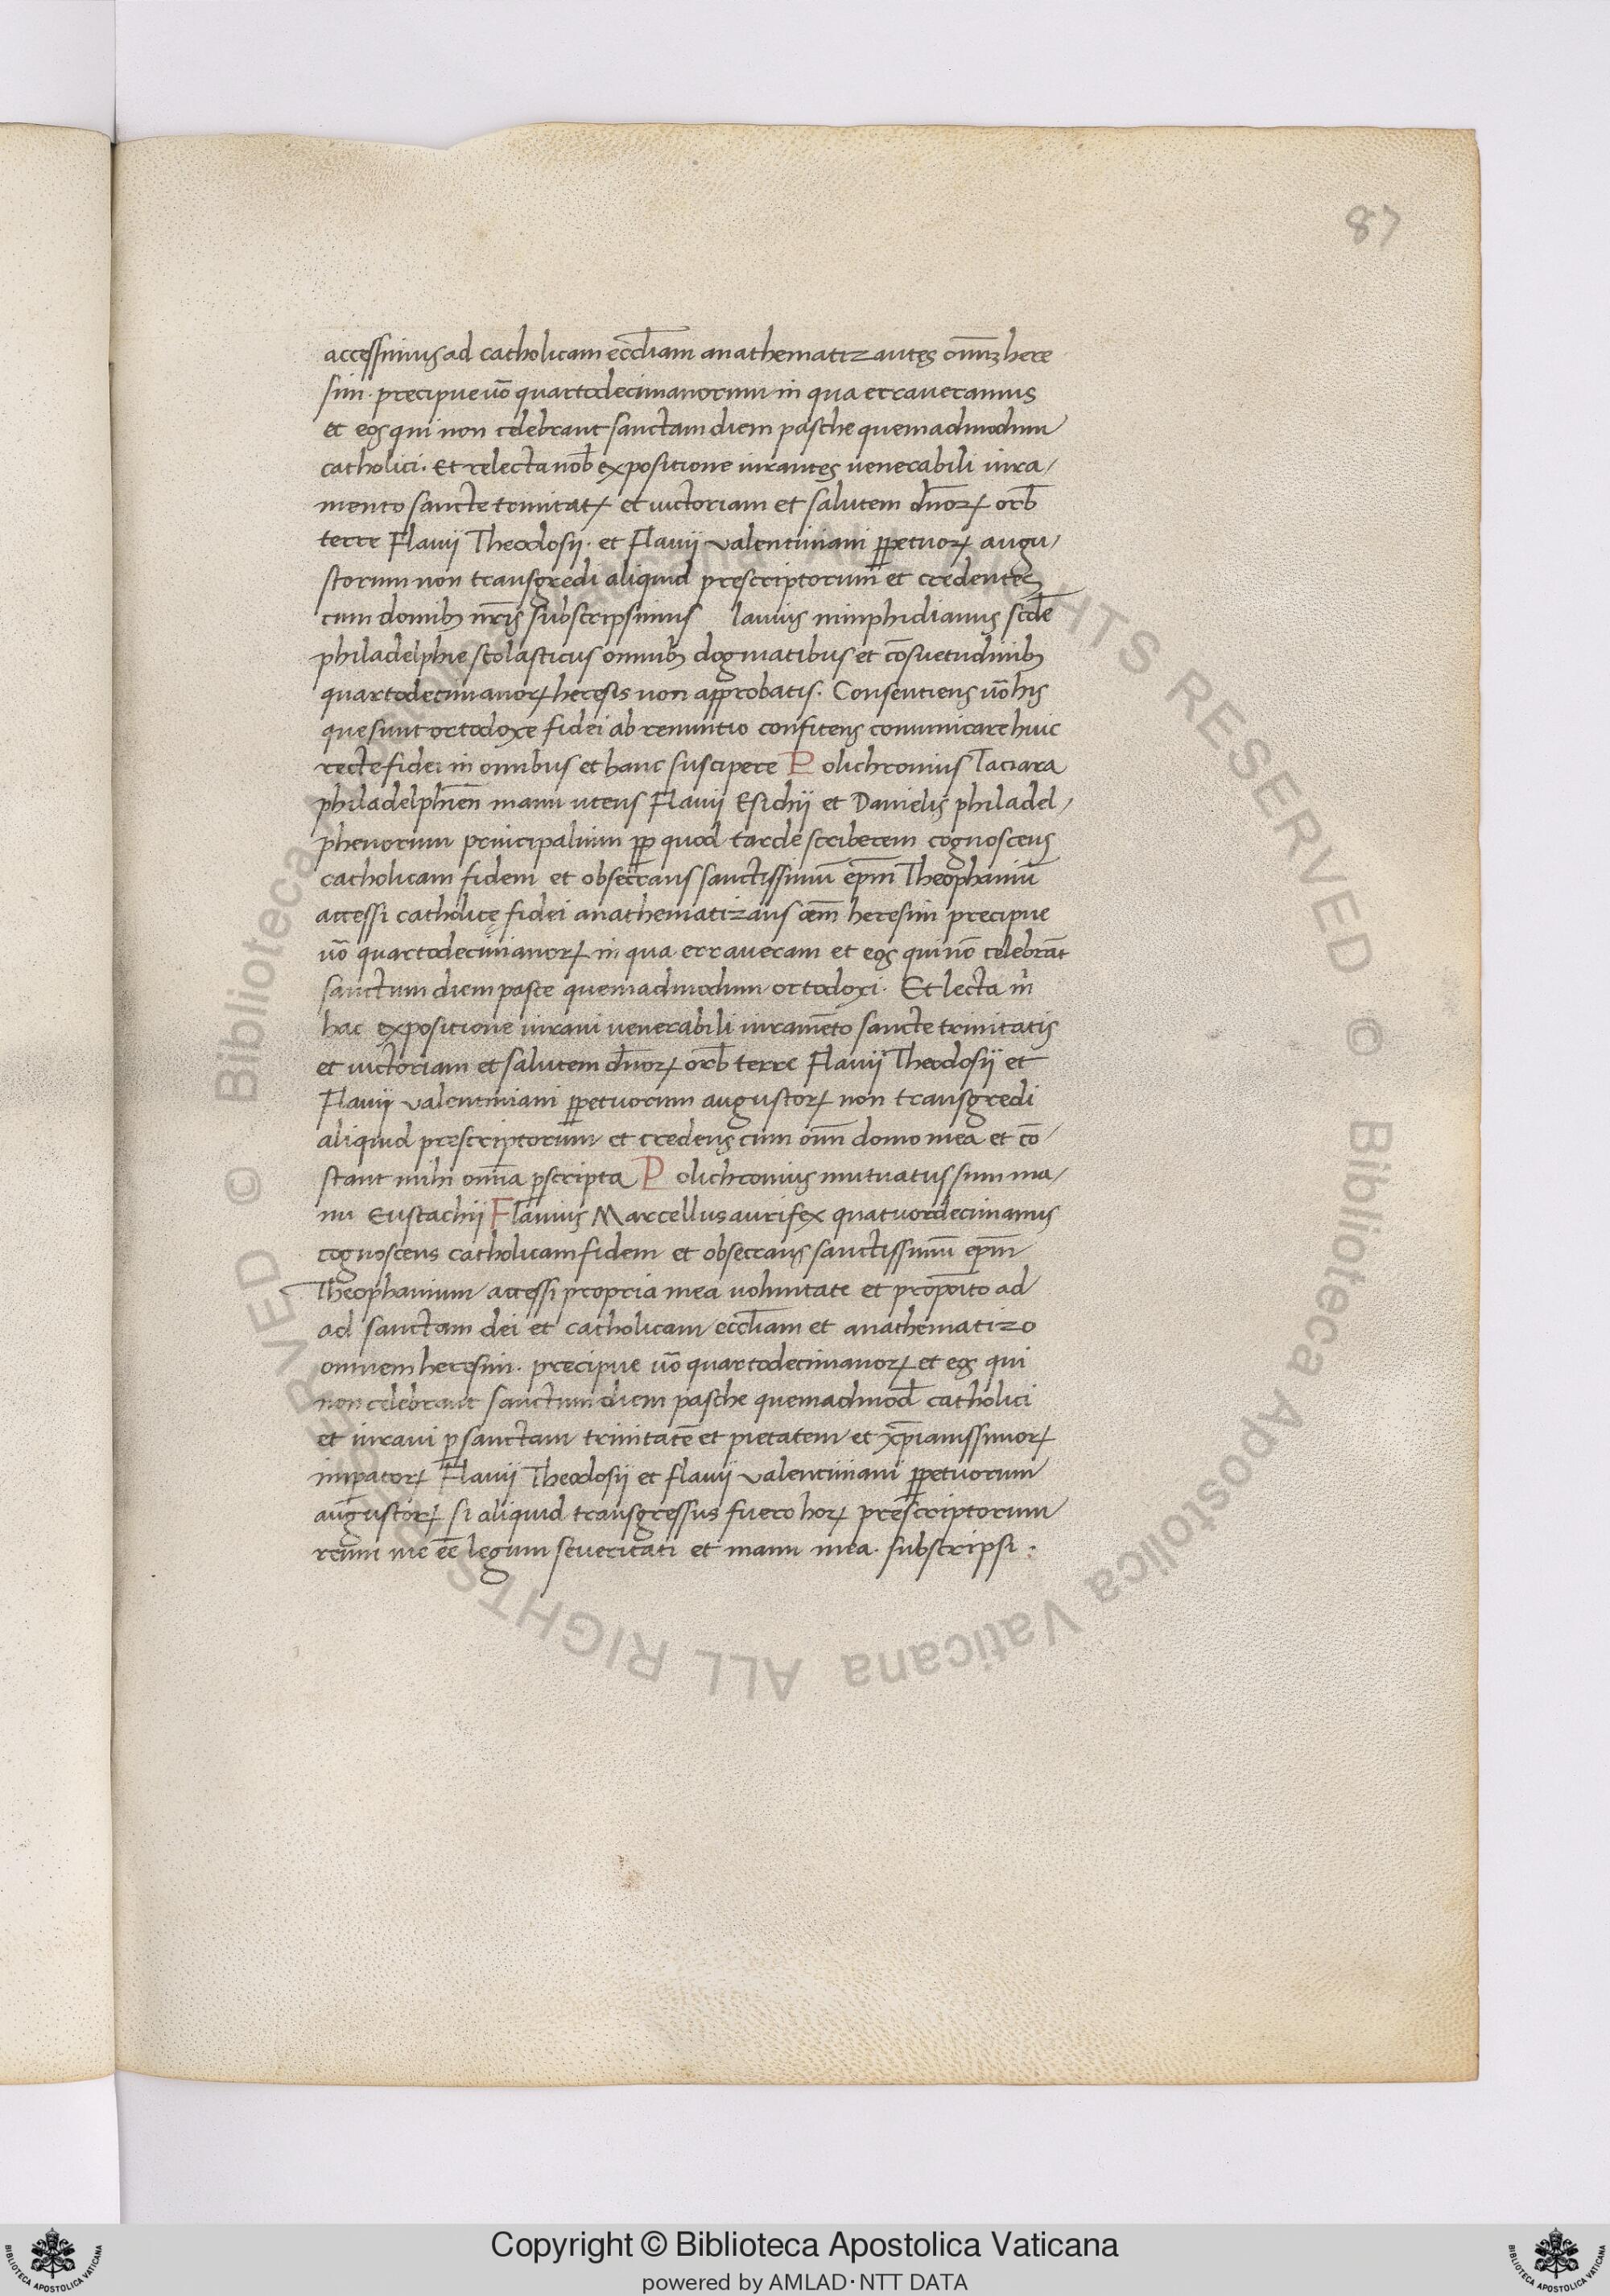 87
accessimus ad catholicam eccl̄iam anathematizantes om̄nꝫ here
sim. precipue ūo quartodecimanorum in qua erraueramus
et eos qui non celebrant sanctam diem pasche quemadmodum
catholici. Et relecta nob̄ expositione iurantes uenerabili iura/
mento sancte trinitatꝭ et uictoriam et salutem dn̄oꝝ orb̄
terre Flauij Theodosij. et Flauij valentiniani ꝑpetuoꝝ augu/
storum non transgredi aliquid prescriptorum et credentes
cum domibꝫ nr̄is subscripsimus lauius nimphidianus scd̄e
philadelphie scolasticus omnibꝫ dogmatibus et cōsuetudinibꝫ
quartodecimanoꝝ heresis non approbatis. Consentiens ūo his
que sunt ortodoxe fidei ab renuntio confitens comunicare huic
recte fidei in omnibus et hanc suscipere Polichronius Taciara
philadelphien̄ manu utens Flauij Esichij et Danielis philadel/
phenorum principalium ꝓp quod tarde scriberem cognoscens
catholicam fidem et obsecrans sanctissimū ep̄m Theophaniū
accessi catholicę fidei anathematizans oēm heresim precipue
ūo quartodecimanoꝝ in qua erraueram et eos qui nō celebrāt
sanctum diem pasce quemadmodum ortodoxi. Et lecta m̄
hac expositione iuraui uenerabili iuramēto sancte trinitatis
et uictoriam et salutem dn̄oꝝ orb̄ terre Flauij Theodosij et
Flauij valentiniani ꝑpetuorum augustoꝝ non transgredi
aliquid prescriptorum et credens cum om̄ domo mea et cō/
stant mihi om̄ia p̄scripta Polichronius mutuatus sum ma/
nu Eustachij Flauius Marcellus aurifex quatuordecimanus
cognoscens catholicam fidem et obsecrans sanctissimū ep̄m
Theophanium accessi propria mea uoluntate et propōito ad
ad sanctam dei et catholicam eccl̄iam et anathematizo
omnem heresim. precipue ūo quartodecimanoꝝ et eos qui
non celebrant sanctum diem pasche quemadmod̄ catholici
et iuraui ꝑ sanctam trinitatē et pietatem et xp̄ianissimoꝝ
impatoꝝ Flauij Theodosij et flauij valentiniani ꝑpetuorum
augustoꝝ si aliquid transgressus fuero hoꝝ prescriptorum
reum me eē legum seueritati et manu mea. subscripsi :
© Biblioteca Apostolica Vaticana ALL RIGHTS RESERVED
Copyright © Biblioteca Apostolica Vaticana
powered by AMLAD·NTT DATA